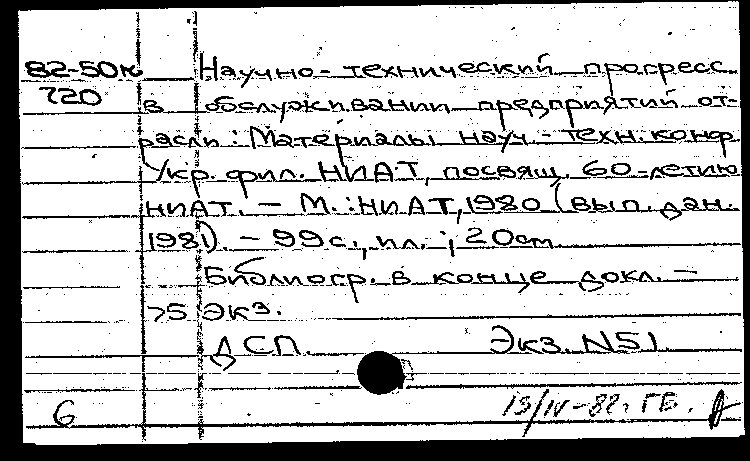 82-50к Научно-технический прогресс
720 в обслуживании предприятий от-
расли: Материалы науч.-техн. конф.
Укр. фил. НИАТ, посвящ. 60-летию
НИАТ. – М.: НИАТ, 1980 (вып. дан.
1981). – 99с., ил.; 20см
Библиогр. в конце докл. –
75 экз.
ДСП. Экз. N51.
6 13/IV-82г. ГБ.